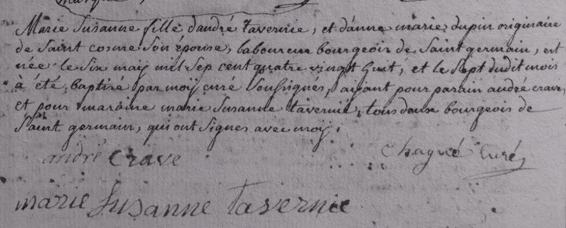 Marie Susanne fille d'andré tavernie, et d'anne marie dupin originaire
de Saint cosme Son epouse, laboureur bourgeois de Saint germain, est
née le Six may mil Sep cent quatre vingt huit, et le Sept dudit mois
à été baptisé par moy curé Soussignes, ayant pour parain andré crave,
et pour maraine marie Susanne tavernie, tous deux bourgeois de
Saint germain, qui ont Signes avec moy.
andré crave
Chagué Curé
marie Susanne tavernie